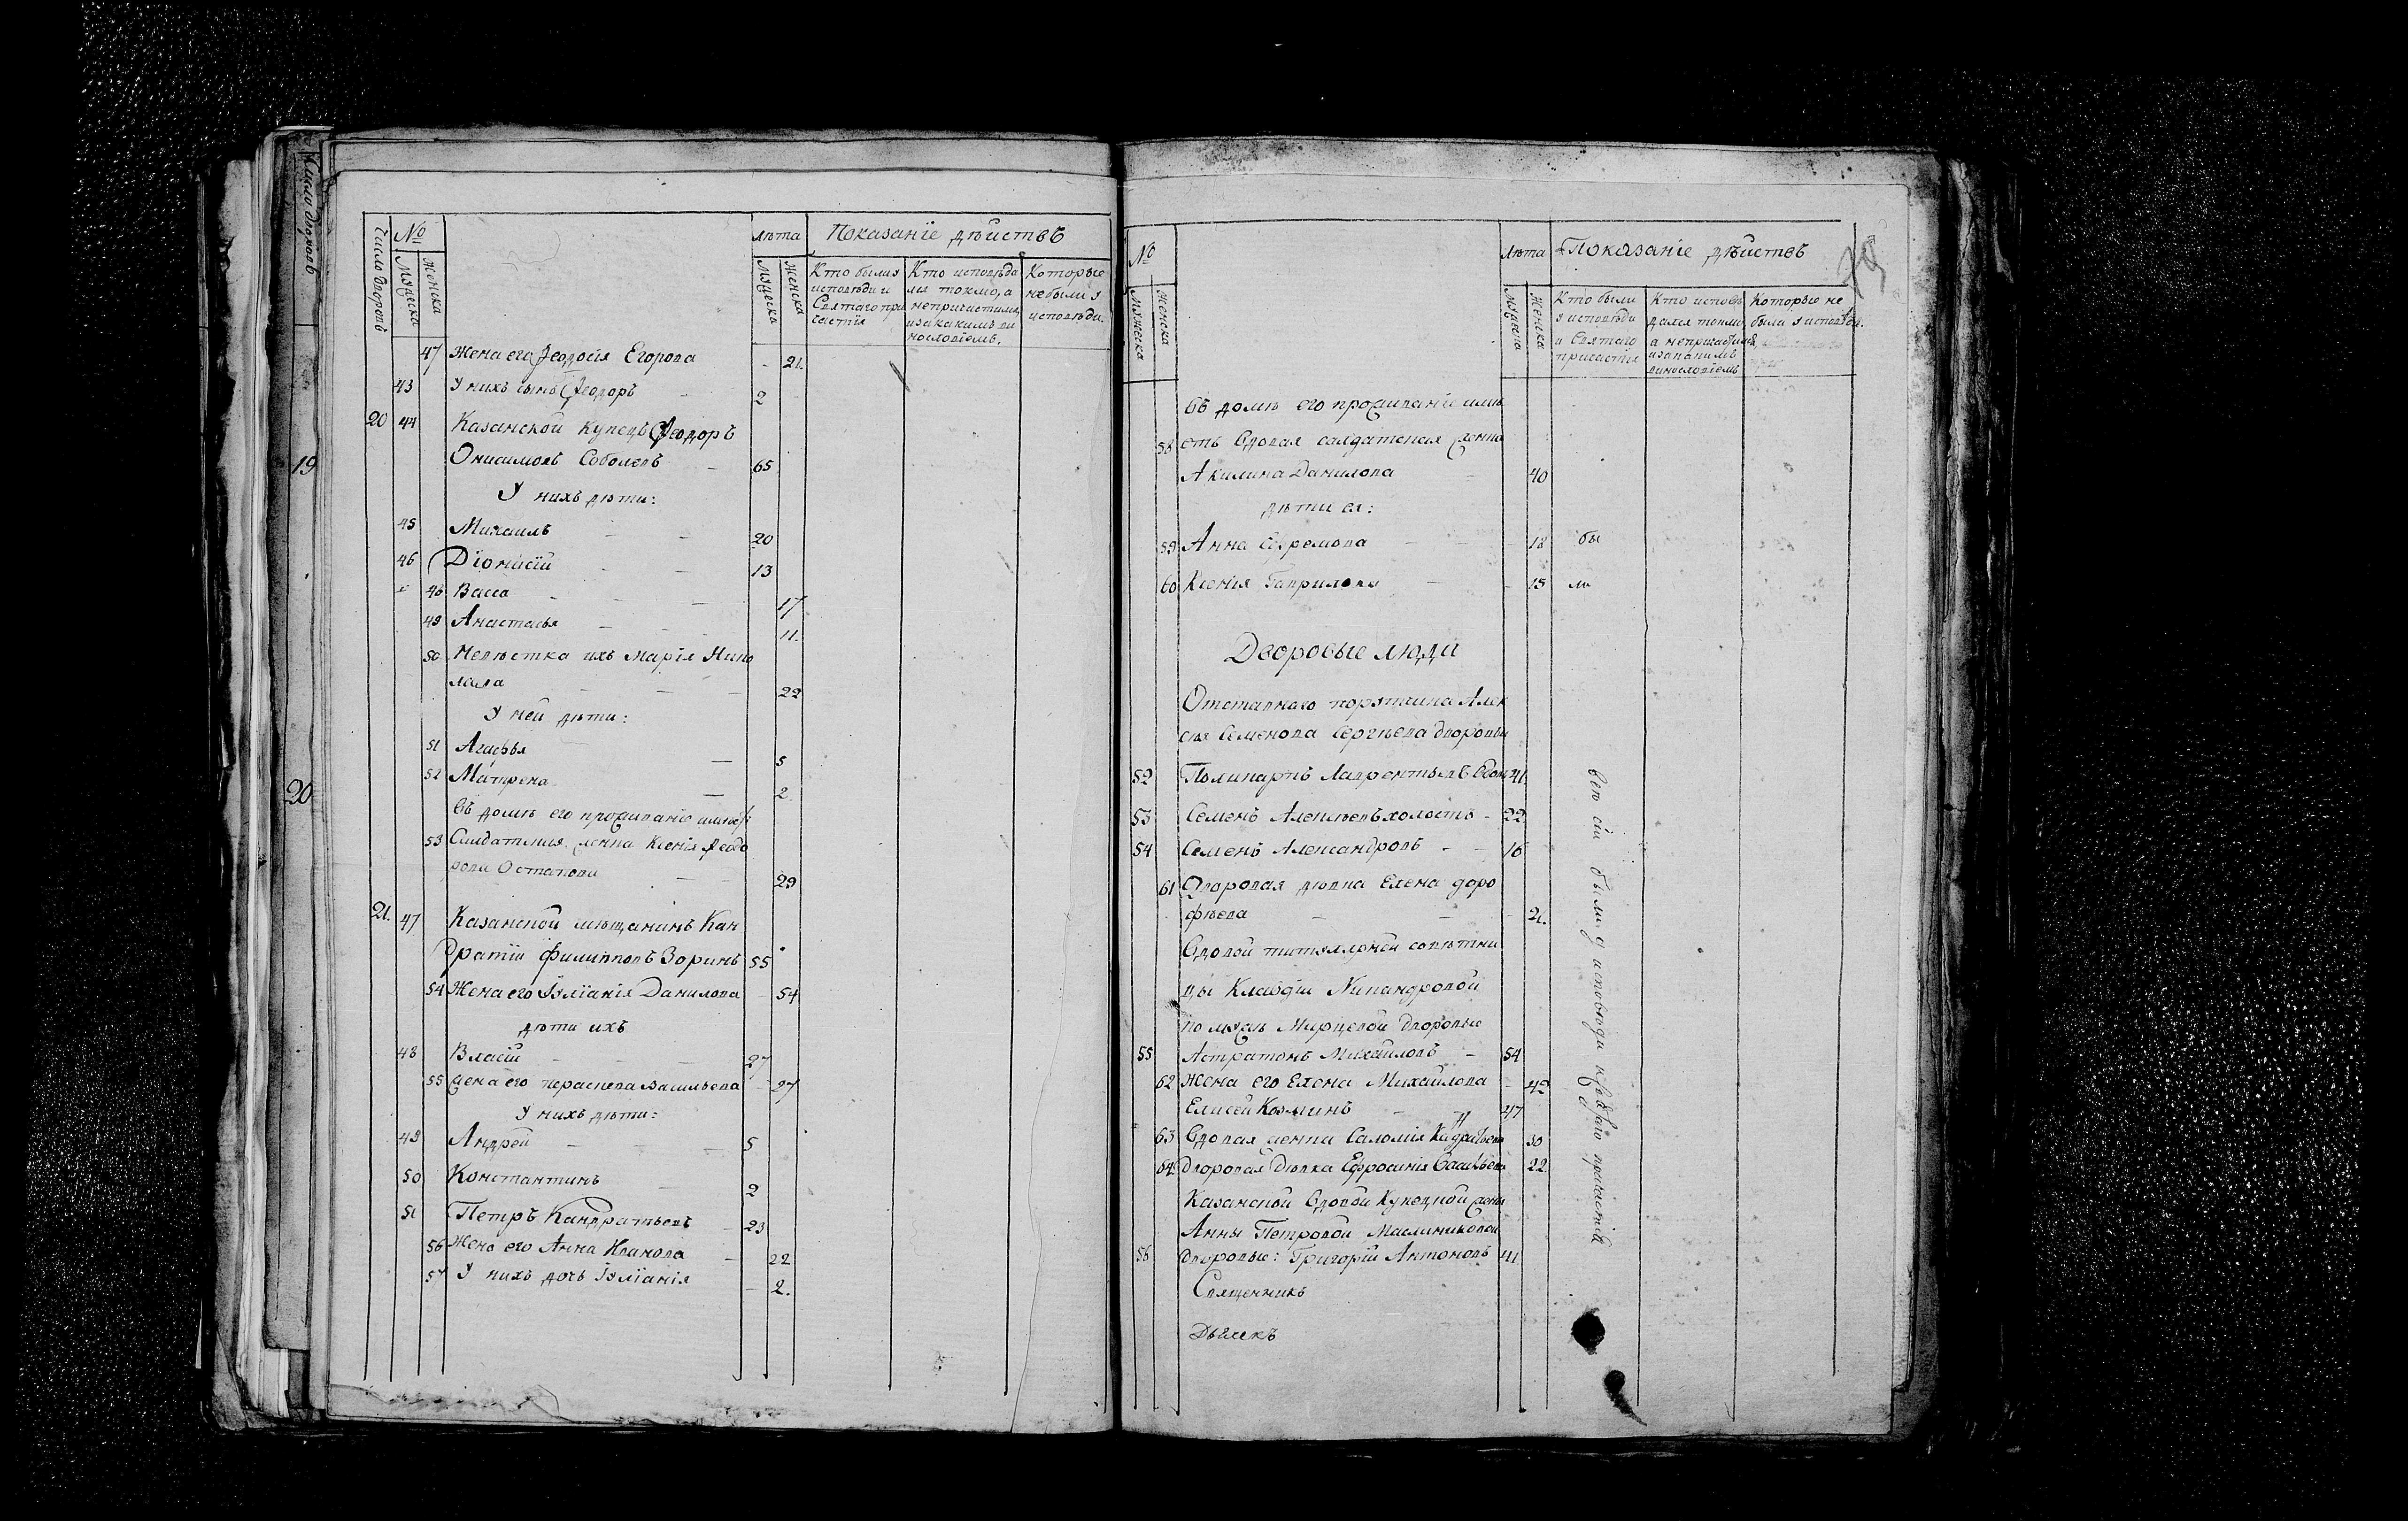 Число дворовъ
19
20
Число дворовъ
№
Мужеска
Женска
лѣта
Мужеска
Женска
Показанїе дѣйствъ
Кто были у
исповѣди и
Святаго при
частїя
Кто исповѣда
лся токмо, а
непричастился
и за какимъ ви
нословїемъ.
Которые
небыли у
исповѣди.
47 Жена его Ѳеодосїя Егорова - 21.
43 У нихъ сынъ Ѳеодоръ 2
20 44 Казанской купецъ Ѳеодоръ
Онисимовъ Соболевъ 65
У нихъ дѣти:
45 Михаилъ 20
46 Дїонисїй 13
48 Васса 17
49 Анастасья 11.
50 Невѣстка ихъ Марїя
22
У ней дѣти:
51 Агафья 5
52 Матрена 2
Въ домѣ его проживанїе имѣетъ
53 Салдатская женка Ксенїя Ѳеодо
рова Остапова 29
21. 47 Казанской мѣщанинъ Кан
дратїй Филипповъ Зоринъ 55
54 Жена его Їулїанїя Данилова - 54
дѣти ихъ
48 Власїй 27
55 жена его Параскева Васильева - 27
У нихъ дѣти:
49 Андрей 5
50 Константинъ 2
51 Петръ Кандратьевъ 23
56 Жена его Анна Иванова 22
57 У нихъ дочь Їулїанїя - 2.
№
Мужеска
Женска
Лѣта
Мужеска
Женска
Показанїе дѣйствъ
Кто были
у исповѣди
и Святаго
причастїя
Кто исповѣ
дался токмо,
а непричастился
и за какимъ
винословїемъ
Которые не
были у исповѣди.
Въ домѣ его проживанїе имѣ
58 етъ Вдовая салдатская женка
Акилина Данилова 40
дѣти ея:
59 Анна Ефремова 18 бы
60 Ксенїя Гаврилова 15 ли
Дворовые люди
Отставнаго порутчика Алек
сѣя Семенова Сергѣева дворовыи
52 Поликарпъ Лаврентьевъ вдовъ 41
53 Семенъ Алексѣевъ холостъ - 22
54 Семенъ Александровъ - 16
61 Дворовая дѣвка Елена доро
фѣева 21.
Вдовой титулярной совѣтни
цы Клавдїи Никандровой
по мужѣ Мирцевой дворовые
55 Астратонъ Михайловъ 54
62 Жена его Елена Михайлова 42
Елисей Козминъ 47
63 Вдовая женка Саломїя Кадратьева 30
64 Дворовая дѣвка Ефросинїя Васильева 22
Казанской Вдовой купецкой жены
Анны Петровой Маслениковой
56 дворовые: Григорїй Антоновъ 41
Священникъ
Дьячекъ
всѣ сїи были у исповѣди и святаго причастїя